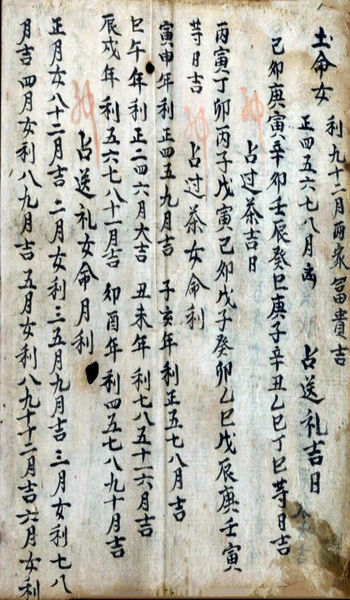 土命女 利九十二月两家富貴吉
正四五六七八月凶 占送礼吉日
己卯庚寅辛卯壬辰癸巳庚子辛丑乙巳丁巳䓁日吉
占过茶吉日
丙寅丁卯丙子戊寅己卯戊子癸卯乙巳戊辰庚壬寅
䓁日吉 占过茶女命利
寅申年利正四五九月吉 子亥年利正五七八月吉
巳午年利正二四六月大吉 丑未年利七八五十一六月吉
辰戌年利五六七八十一月吉 卯酉年利四五七八九十月吉
占送礼女命月利
正月女八十二月吉 二月女利三五九月吉 三月女利七八
月吉 四月女利八九月吉 五月女利八九十十二月吉 六月女利